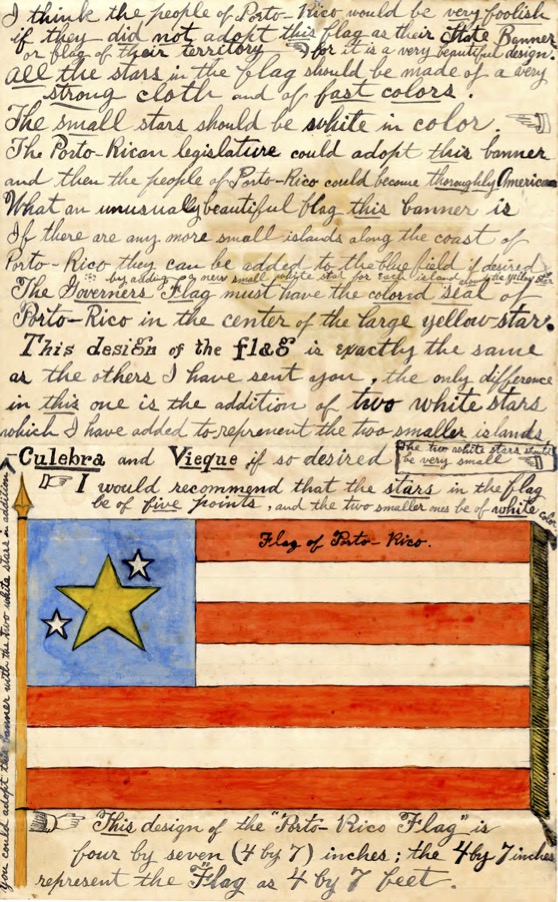 I think the people of Porto-Rico would be very foolish
if they did not adopt this flag as their State Banner
or flag of their territory for it is a very beautiful design.
All the stars in the flag should be made of a very
strong cloth and of fast colors.
The small stars should be white in color.
The Porto-Rican legislature could adopt this banner
and then the people of Porto-Rico could become thoroughly American
What an unusually beautiful flag this banner is
If there are any more small islands along the coast of
Porto-Rico they can be added to the blue field if desired
by adding a new small white star for each island around the yellow star
The Governers Flag must have the colored seal of
Porto-Rico in the center of the large yellow star.
This design of the flag is exactly the same
as the others I have sent you, the only difference
in this one is the addition of two white stars
which I have added to represent the two smaller islands,
Culebra and Vieque if so desired
The two white stars should
be very small
I would recommend that the stars in the flag
be of five points, and the two smaller ones be of white color
You could adopt this banner with the two white stars in addition
Flag of Porto-Rico.
This design of the "Porto-Rico Flag" is
four by seven (4 by 7) inches; the 4 by 7 inches
represent the Flag as 4 by 7 feet.